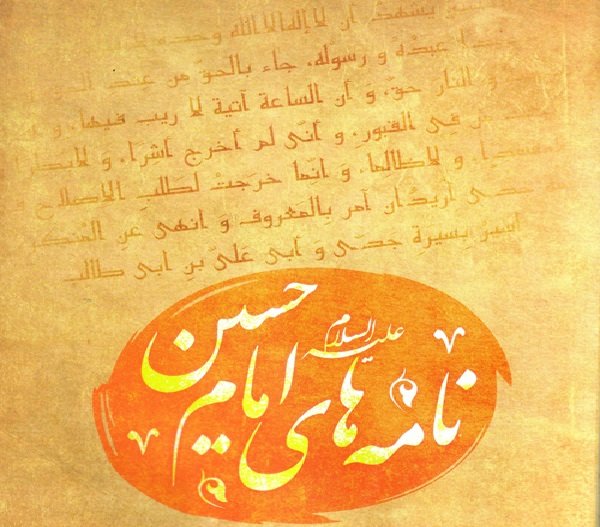 حسين يشهد أن لا إله إلا الله وحده
عبده و رسوله، جاء بالحق من عند الحق
و النار حق، و أن الساعة آتية لا ريب فيها، و
من في القبور، و أني لم أخرج أشرا، و لا بطرا
و لا ظالما، و إنما خرجت لطلب الاصلاح
جدي أريد أن آمر بالمعروف و انهى عن المنكر
اسير بسيرة جدي و أبي علي بن ابي طالب
نامه های امام حسین علیه السلام